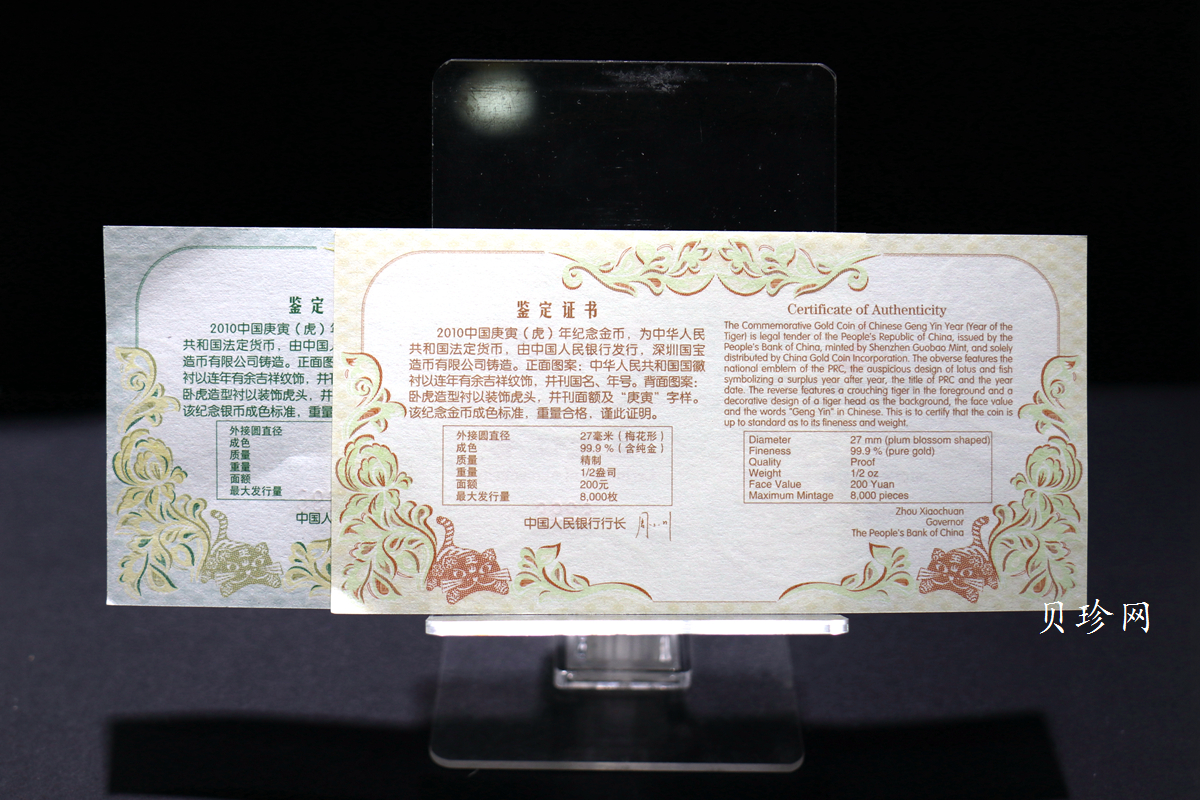 鉴定
2010中国庚寅（虎）
共和国法定货币，由中国人
造币有限公司铸造。正面图
衬以连年有余吉祥纹饰，并
卧虎造型衬以装饰虎头，并
该纪念银币成色标准，重量
外接圆直径
成色
质量
重量
面额
最大发行量
中国人
鉴定证书
2010中国庚寅（虎）年纪念金币，为中华人民
共和国法定货币，由中国人民银行发行，深圳国宝
造币有限公司铸造。正面图案：中华人民共和国国徽
衬以连年有余吉祥纹饰，并刊国名、年号。背面图案：
卧虎造型衬以装饰虎头，并刊面额及“庚寅”字样。
该纪念金币成色标准，重量合格，谨此证明。
外接圆直径 27毫米（梅花形）
成色 99.9％（含纯金）
质量 精制
重量 1/2盎司
面额 200元
最大发行量 8,000枚
中国人民银行行长
Certificate of Authenticity
The Commemorative Gold Coin of Chinese Geng Yin Year (Year of the
Tiger) is legal tender of the People's Republic of China, issued by the
People's Bank of China, minted by Shenzhen Guobao Mint, and solely
distributed by China Gold Coin Incorporation. The obverse features the
national emblem of the PRC, the auspicious design of lotus and fish
symbolizing a surplus year after year, the title of PRC and the year
date. The reverse features a crouching tiger in the foreground and a
decorative design of a tiger head as the background, the face value
and the words “Geng Yin” in Chinese. This is to certify that the coin is
up to standard as to its fineness and weight.
Diameter 27 mm (plum blossom shaped)
Fineness 99.9 % (pure gold)
Quality Proof
Weight 1/2 oz
Face Value 200 Yuan
Maximum Mintage 8,000 pieces
Zhou Xiaochuan
Governor
The People's Bank of China
贝珍网